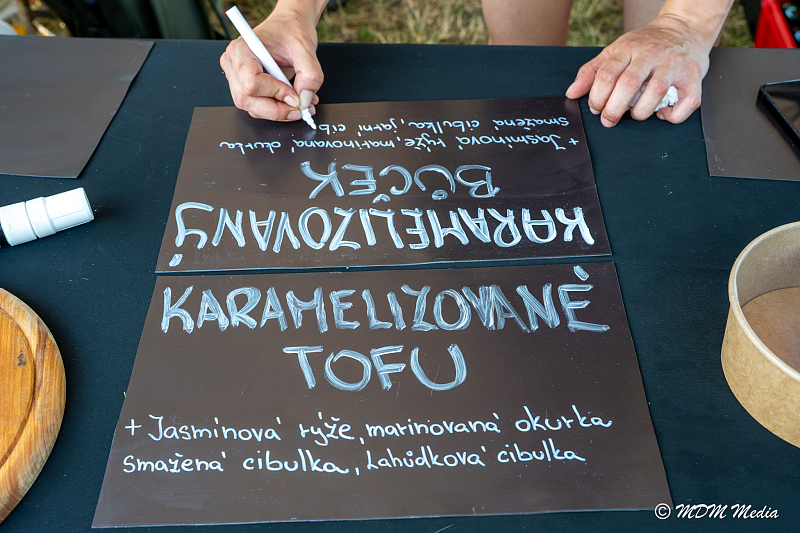 KARAMELIZOVANÝ
BŮČEK
+ Jasmínová rýže, marinovaná okurka
smažená cibulka, jarní cib
KARAMELIZOVANÉ
TOFU
+ Jasmínová rýže, marinovaná okurka
Smažená cibulka, Lahůdková cibulka
© MDM Media